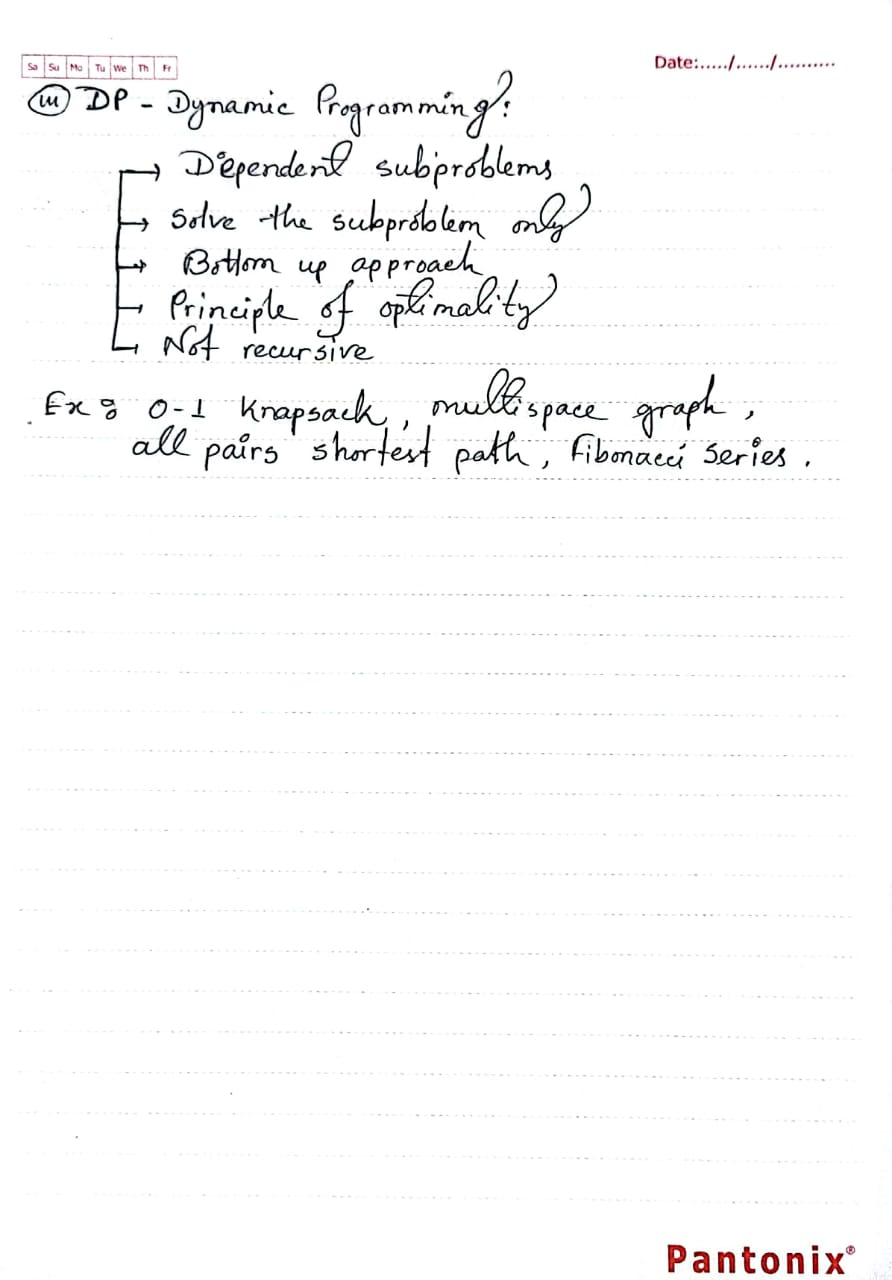 Sa Su Mo Tu We Th Fr
Date:...../....../..........
(iii) DP - Dynamic Programming:
→ Dependent subproblems
→ Solve the subproblem only
→ Bottom up approach
→ Principle of optimality
→ Not recursive
Ex: 0-1 Knapsack, multispace graph,
all pairs shortest path, Fibonacci Series.
Pantonix®